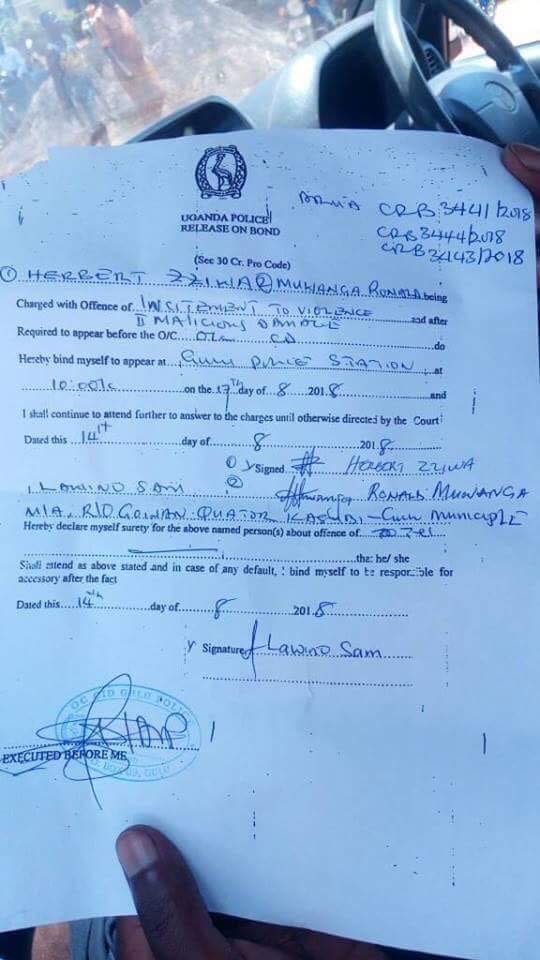 ARUA CRB 3441/2018
CRB 3444/2018
CRB 3443/2018
UGANDA POLICE
RELEASE ON BOND
(Sec 30 Cr. Pro Code)
① HERBERT ZZIWA ② MUWANGA RONALD being
Charged with Offence of INSITEMENT TO VIOLENCE and after
II MALICIOUS DAMAGE
Required to appear before the O/C. CID do
Hereby bind myself to appear at GULU POLICE STATION at
10:00 on the 17th day of 8 2018 and
I shall continue to attend further to answer to the charges until otherwise directed by the Court
Dated this 14th day of 8 2018
① Signed HERBERT ZZIWA
② RONALD MUWANGA
I LAWINO SAM
M/A. R/O QUATOR KASUBI - GULU
Hereby declare myself surety for the above named person(s) about offence of
that he/ she
Shall attend as above stated and in case of any default, I bind myself to be responsible for
accessory after the fact
Dated this 14th day of 8 2018
Signature Lawino Sam
OC CID GULU POLICE
GULU
EXECUTED BEFORE ME